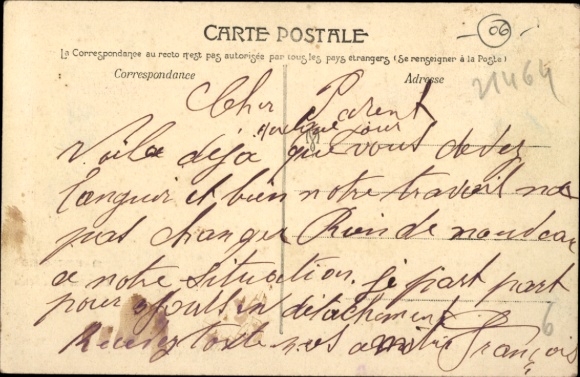 CARTE POSTALE
La Correspondance au recto n'est pas autorisée par tous les pays étrangers (Se renseigner à la Poste)
Correspondance
Adresse
06
21464
Cher Parent
quelque jour
Voila deja que vous devez
languir et bien notre travail na
pas changer Rien de nouveau
a notre situation. je part part
pour en detachement
Recevez toute nos amitié François
6